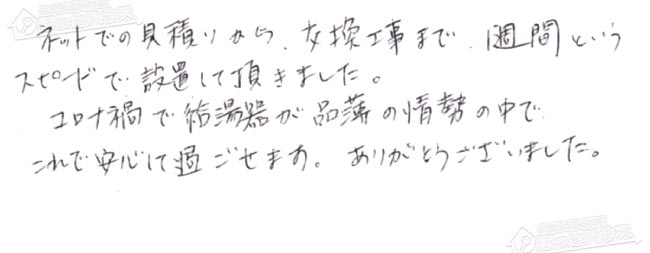 ネットでの見積りから、交換工事まで、1週間という
スピードで設置して頂きました。
コロナ禍で給湯器が品薄の情勢の中で
これで安心して過ごせます。ありがとうございました。